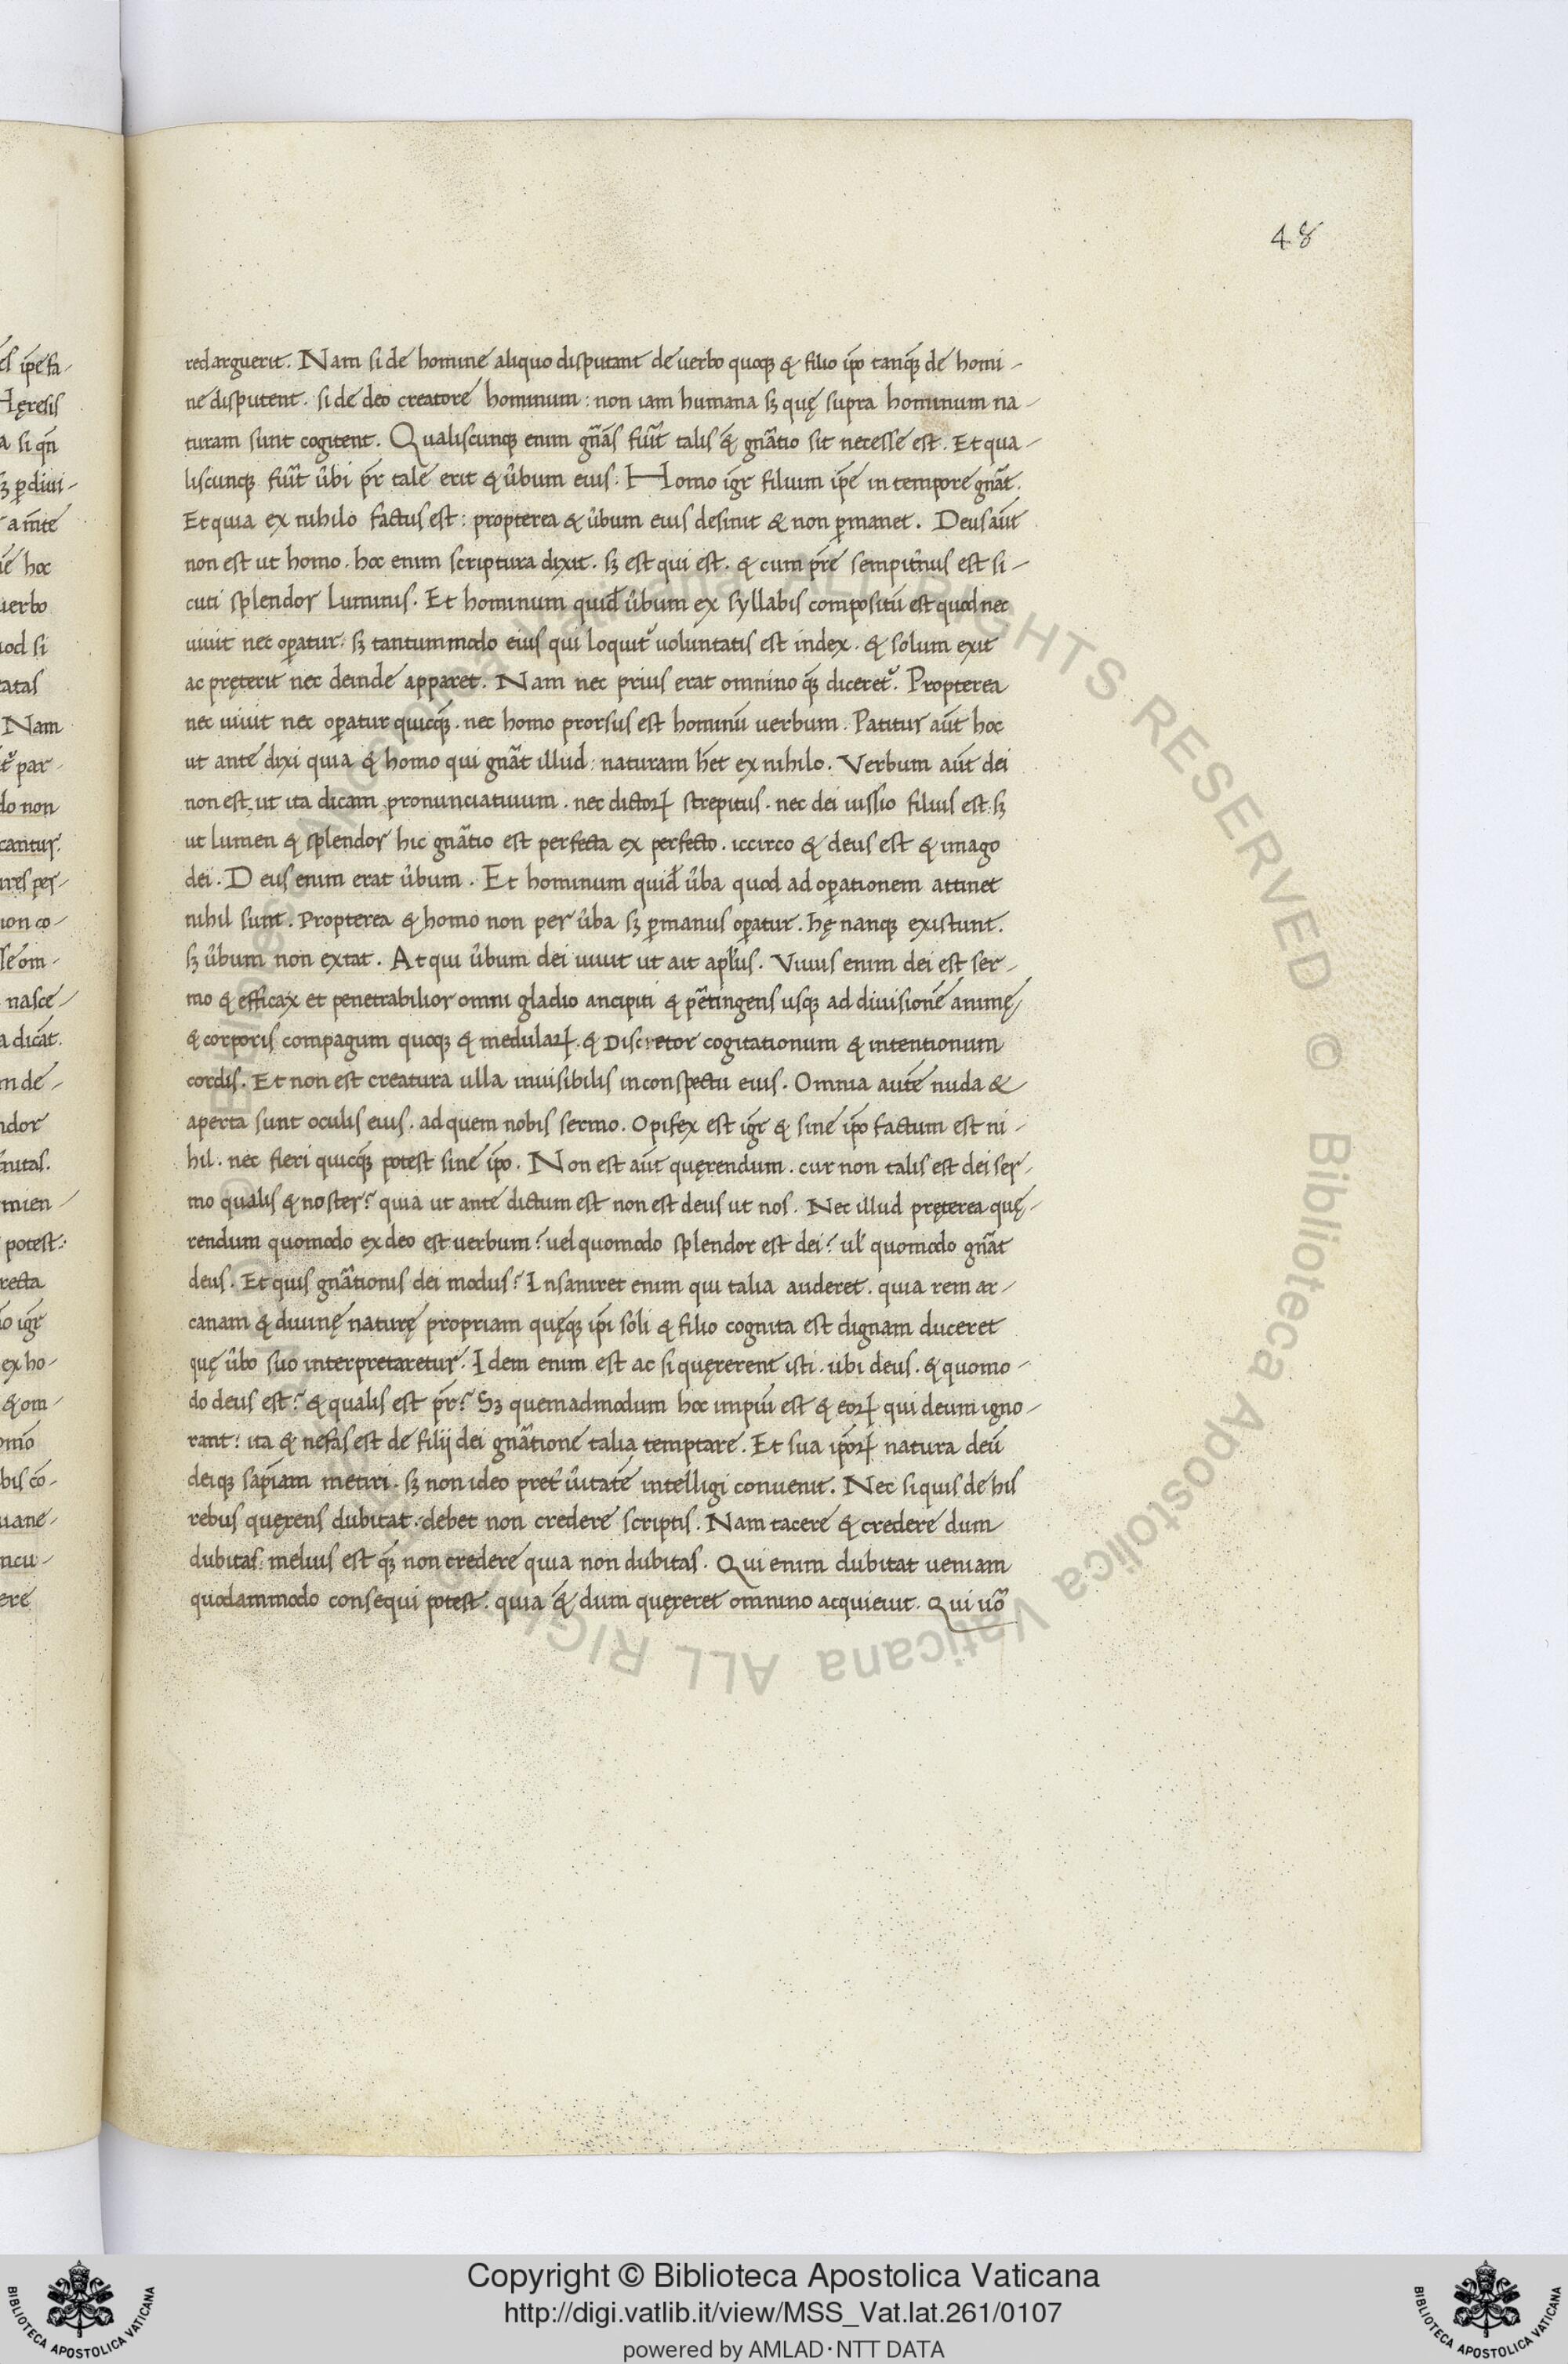 48
redarguerit. Nam si de homine aliquo disputant de uerbo quoqꝫ & filio ip̄o tanq̄ꝫ de homi-
ne disputent. si de deo creatore hominum: non iam humana sꝫ quę supra hominum na-
turam sunt cogitent. Qualiscunqꝫ enim gn̄ās fūit talis & gn̄atio sit necesse est. Et qua-
liscunqꝫ fūit ūbi pr̄ tale erit & ūbum eius: Homo igr̄ filium ip̄e in tempore gn̄at.
Et quia ex nihilo factus est: propterea & ūbum eius desinit & non ꝑmanet. Deus aūt
non est ut homo. hoc enim scriptura dixit. sꝫ est qui est. & cum pr̄e sempit̄nus est si-
cuti splendor luminis. Et hominum quid̄ ūbum ex syllabis compositū est quod nec
uiuit nec oꝑatur: sꝫ tantummodo eius qui loquit᷑ uoluntatis est index. & solum exit
ac pręterit nec deinde apparet. Nam nec prius erat omnino q̄ꝫ diceret᷑. Propterea
nec uiuit nec oꝑatur quicq̄ꝫ. nec homo prorsus est hominū uerbum. Patitur aūt hoc
ut ante dixi quia & homo qui gn̄at illud: naturam hēt ex nihilo. Verbum aūt dei
non est, ut ita dicam pronunciatiuum. nec dictoꝝ strepitus. nec dei iussio filius est: sꝫ
ut lumen & splendor hic gn̄atio est perfecta ex perfecto. iccirco & deus est & imago
dei. Deus enim erat ūbum. Et hominum quid̄ ūba quod ad oꝑationem attinet
nihil sunt. Propterea & homo non per ūba sꝫ ꝑ manus oꝑatur. hę nanqꝫ existunt.
sꝫ ūbum non extat. Atqui ūbum dei uiuit ut ait apl̄us. Viuus enim dei est ser-
mo & efficax et penetrabilior omni gladio ancipiti & pētingens usqꝫ ad diuisionē animę
& corporis compagum quoqꝫ & medulaꝝ. & Discretor cogitationum & intentionum
cordis. Et non est creatura ulla inuisibilis in conspectu eius. Omnia autē nuda &
aperta sunt oculis eius. ad quem nobis sermo. Opifex est igr̄ & sine ip̄o factum est ni-
hil. nec fieri quicq̄ꝫ potest sine ip̄o. Non est aūt quęrendum. cur non talis est dei ser-
mo qualis & noster? quia ut ante dictum est non est deus ut nos. Nec illud pręterea quę-
rendum quomodo ex deo est uerbum? uel quomodo splendor est dei? ul̄ quomodo gn̄at
deus. Et quis gn̄ationis dei modus? Insaniret enim qui talia auderet. quia rem ar-
canam & diuinę naturę propriam quęqꝫ ip̄i soli & filio cognita est dignam duceret
quę ūbo suo interpretaretur. Idem enim est ac si quęrerent isti. ubi deus. & quomo-
do deus est? & qualis est pr̄? Sꝫ quemadmodum hoc impiū est & eoꝝ qui deum igno-
rant: ita & nefas est de filij dei gn̄atione talia temptare. Et sua ip̄oꝝ natura deū
deiqꝫ sap̄iam metiri. sꝫ non ideo pret̄ ūitatē intelligi conuenit. Nec si quis de his
rebus quęrens dubitat. debet non credere scriptis. Nam tacere & credere dum
dubitas: melius est q̄ꝫ non credere quia non dubitas. Qui enim dubitat ueniam
quodammodo consequi potest. quia & dum quęreret omnino acquieuit. Qui uō
Copyright © Biblioteca Apostolica Vaticana
http://digi.vatlib.it/view/MSS_Vat.lat.261/0107
powered by AMLAD·NTT DATA